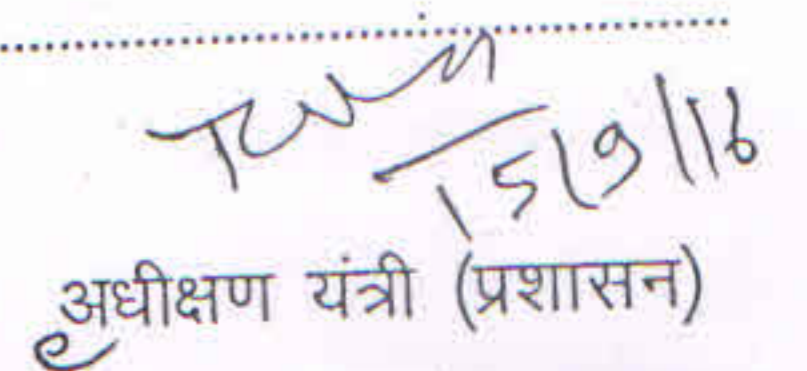 15/9/16
अधीक्षण यंत्री (प्रशासन)